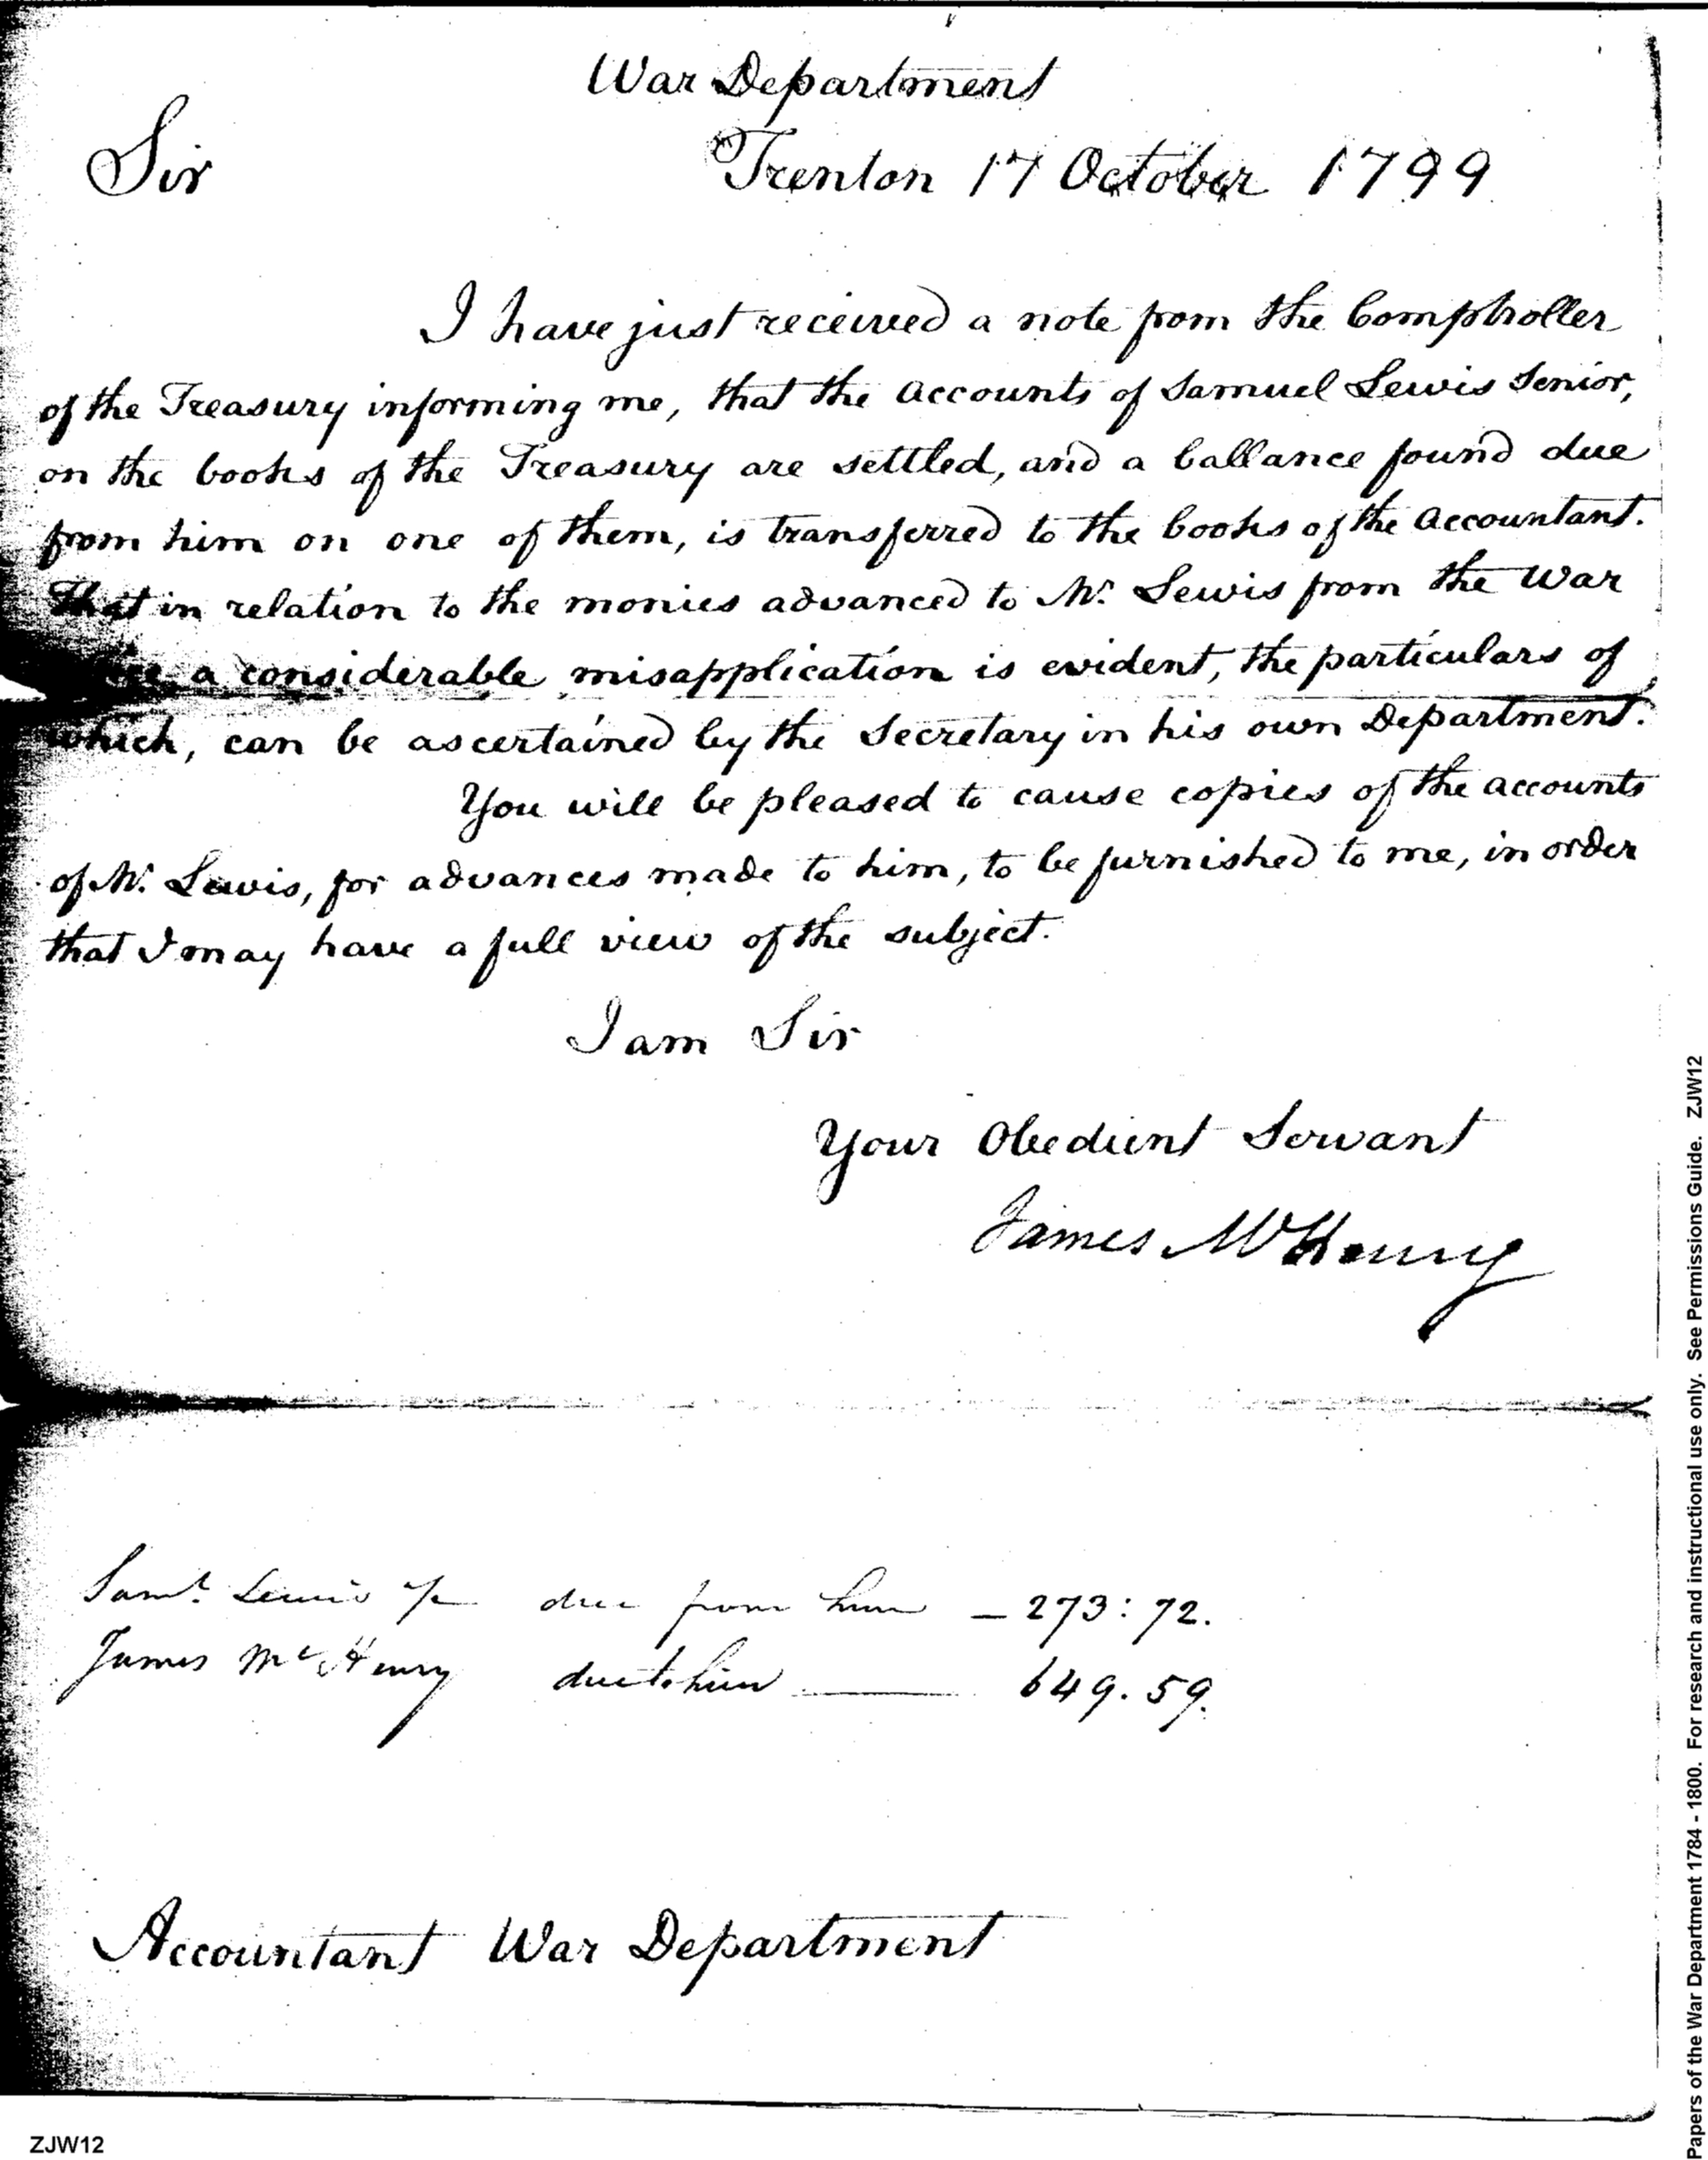 War Department
Sir
Trenton 17 October 1799
I have just received a note from the Comptroller
of the Treasury informing me, that the accounts of Samuel Lewis Senior,
on the books of the Treasury are settled, and a ballance found due
from him on one of them, is transferred to the books of the Accountant.
That in relation to the monies advanced to Mr. Lewis from the War
a considerable misapplication is evident, the particulars of
which, can be ascertained by the Secretary in his own Department.
You will be pleased to cause copies of the accounts
of Mr. Lewis, for advances made to him, to be furnished to me, in order
that I may have a full view of the subject.
I am Sir
Your Obedient Servant
James McHenry
Saml. Lewis due from him — 273:72.
James McHenry due to him — 649.59.
Accountant War Department
ZJW12
Papers of the War Department 1784 - 1800. For research and instructional use only. See Permissions Guide. ZJW12